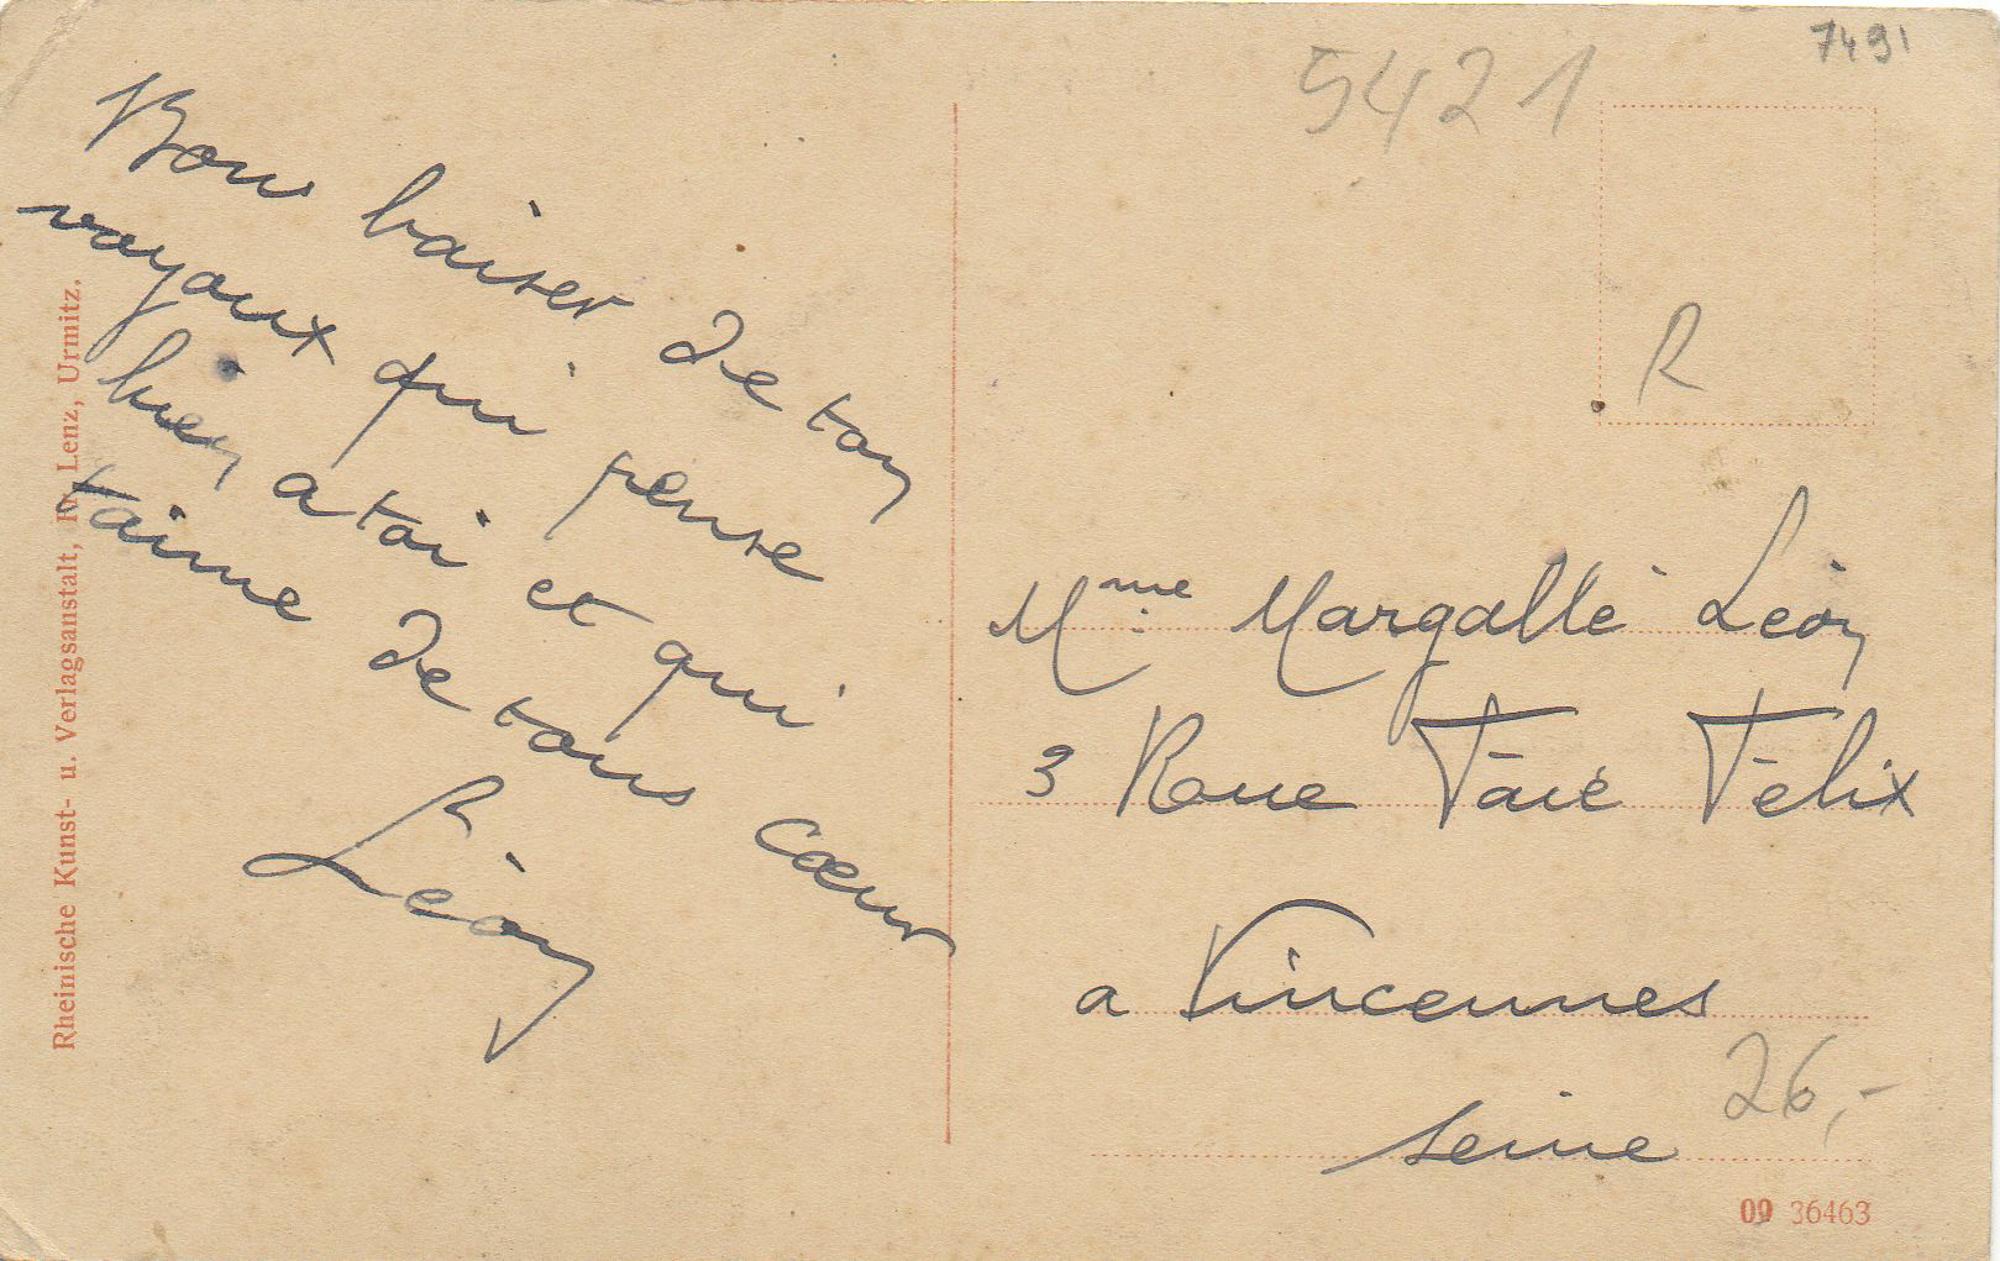 Bon baiser de ton
royaux qui pense
bien a toi et qui
t'aime de tous cœur
Léon
Rheinische Kunst- u. Verlagsanstalt, R. Lenz, Urmitz.
5421
7491
R
Mme Margallé Léon
3 Roue Faié Félix
a Vincennes
Seine
26,-
09 36463